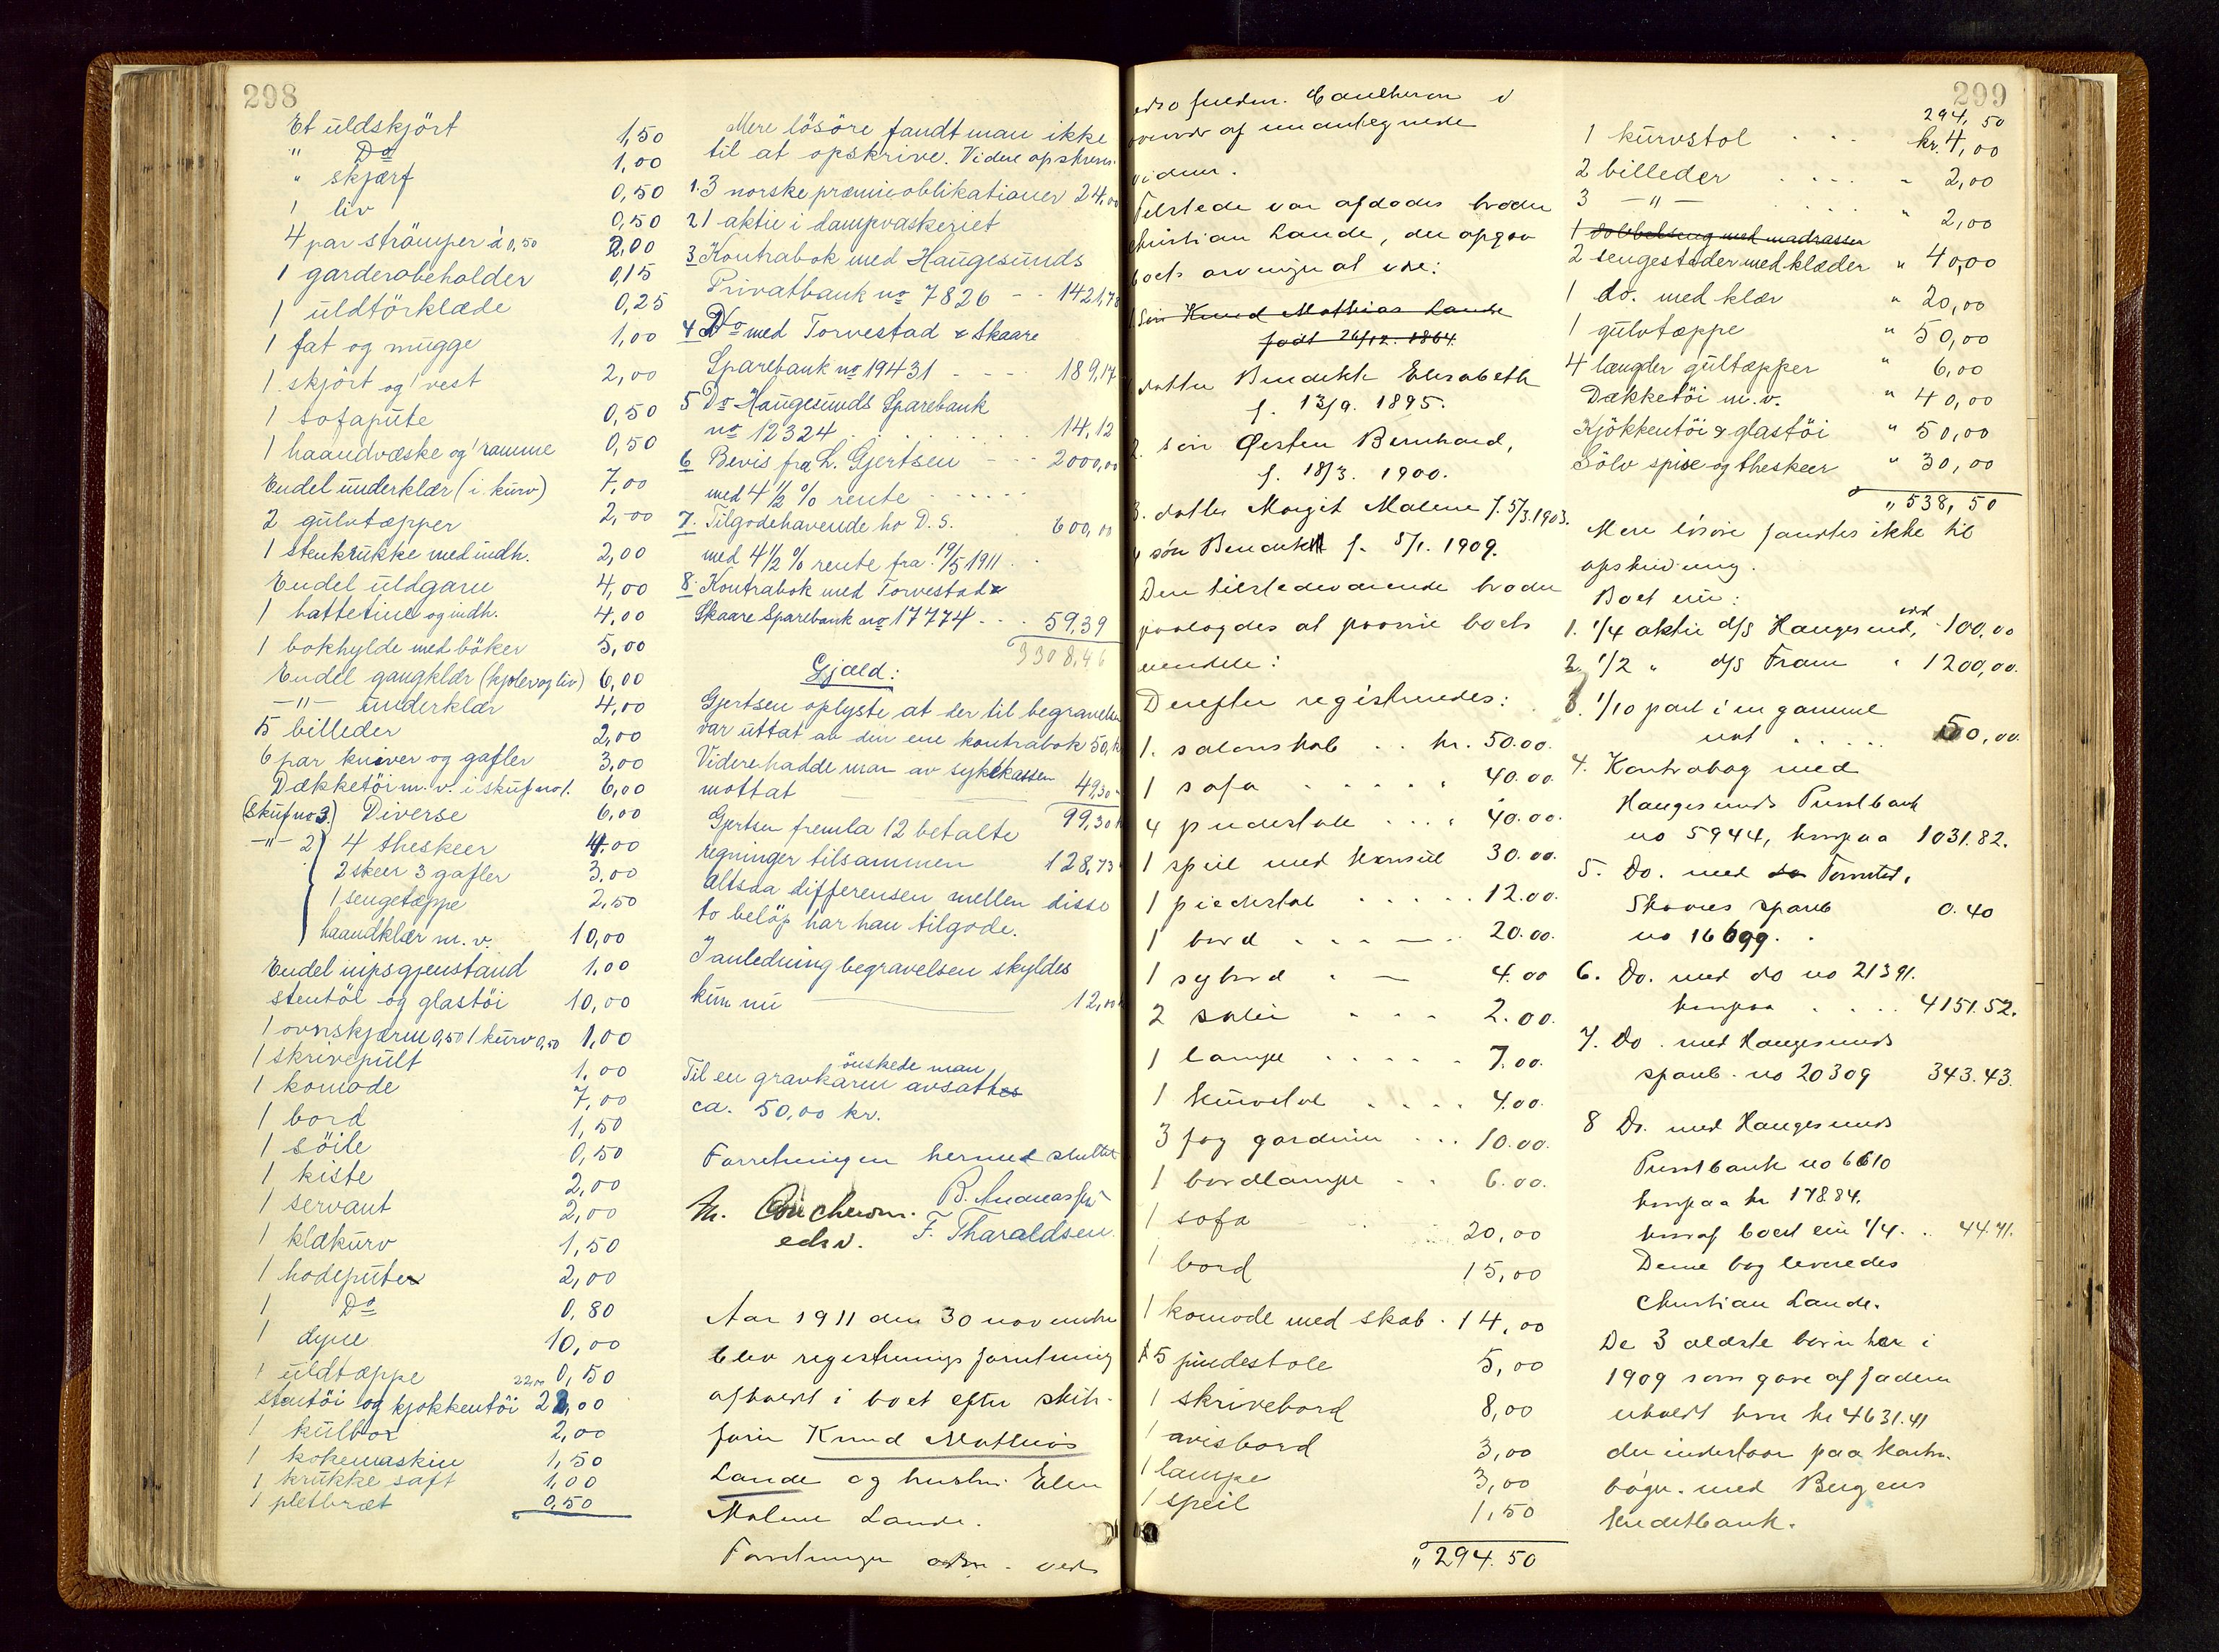 298
Et uldskjört 1,50
" Do 1,00
" skjærf 0,50
1 liv 0,50
4 par strömper à 0,50 2,00
1 garderobeholder 0,15
1 uldtörklæde 0,25
1 fat og mugge 1,00
1 skjört og 1 vest 2,00
1 sofapute 0,50
1 haandvæske og 1 ramme 0,50
Endel underklær (i kurv) 7,00
2 gulvtæpper 2,00
1 stenkrukke med indh. 2,00
Endel uldgarn 4,00
1 hattetine og indh. 4,00
1 bokhylde med böker 5,00
Endel gangklær (kjoler og liv) 6,00
—"— underklær 4,00
5 billeder 2,00
6 par kniver og gafler 3,00
Dækketöi m.v. i skuf no 1. 6,00
(Skuf no 3.) Diverse 6,00
—"— 2 4 theskeer 4,00
2 skeer 3 gafler 3,00
1 sengetæppe 2,50
haandklær m.v. 10,00
Endel nipsgjenstand 1,00
stentöi og glastöi 10,00
1 ovnskjærm 0,50 1 kurv 0,50 1,00
1 skrivepult 1,00
1 komode 7,00
1 bord 1,50
1 söile 0,50
1 kiste 2,00
1 servant 2,00
1 klækurv 1,50
1 hodeputer 2,00
1 Do 0,80
1 dyne 10,00
1 uldtæppe 0,50
stentöi og kjøkkentöi 22,00 22,00
1 kulbox 2,00
1 kokemaskin 1,50
1 krukke saft 1,00
1 pletbræt 0,50
Mere lösöre fandt man ikke
til at opskrive. Videre opskrevs
1. 3 norske præmieoblikationer 24,00
2 1 aktie i dampvaskeriet
3 Kontrabok med Haugesunds
Privatbank no 7826 - - 1421,78
4 Do med Torvestad & Skaare
Sparebank no 19431 - - - 189,17
5 Do Haugesunds Sparebank
no 12324 14,12
6 Bevis fra L. Gjertsen 2000,00
med 4 1/2 % rente
7. Tilgodehavende ho D.S. 600,00
med 4 1/2 % rente fra 19/5 1911
8. Kontrabok med Torvestad &
Skaare Sparebank no 17774 59,39
3308,46
Gjæld:
Gjertsen oplyste at der til begravelsen
var uttat av den ene kontrabok 50,
Videre hadde man av sykekassen
mottat 49,30
99,30
Gjertsen fremla 12 betalte
regninger tilsammen 128,73
altsaa differensen mellem disse
to belöp har han tilgode.
I anledning begravelsen skyldes
kun nu 12,00
önskede man
Til en gravkarm avsattes
ca. 50,00 kr.
Forretningen hermed sluttet
B. Andreassen
edsv. F. Tharaldsen.
Aar 1911 den 30 november
blev registreringsforretning
afholdt i boet efter skibs-
fører Knud Mathias
Lande og hustru Elen
Malene Lande.
Forretningen adm. ved
299
overvær af underteg nede
vidner.
Tilstede var afdødes broder
Christian Lande, der opgav
boets arvinger at være:
1 søn Knud Mathias Lande
født 26/12. 1864.
1 datter Bendikte Elisabeth
f. 13/9. 1895.
2. søn Øisten Bernhard,
f. 18/3. 1900.
3. datter Margit Malene f. 5/3. 1903.
4 søn Bendikt f. 5/1. 1909.
Den tilstedeværende broder
paalagdes at paavise boets
eiendele:
Derefter registreredes:
1. salonskab .. kr. 50.00.
1 sofa 40.00
4 pudestole 40.00.
1 speil med konsol 30.00.
1 piedestal 12.00.
1 bord 20.00.
1 sybord 4.00
2 søiler 2.00.
1 lampe 7.00.
1 kurvstol 4.00.
3 fag gardiner 10.00.
1 bordlampe 6.00.
1 sofa 20,00
1 bord 15,00
1 komode med skab 14,00
5 pindestole 5,00
1 skrivebord 8,00
1 avisbord 3,00
1 lampe 3,00
1 speil 1,50
" 294.50
294,50
1 kurvstol kr. 4,00
2 billeder " 2,00
3 —"— " 2,00
1 dobbeltseng med madrasser
2 sengesteder med klæder " 40,00
1 do. med klær " 20,00
1 gulvtæppe " 50,00
4 længder gultæpper " 6,00
Dækketöi m.v. " 40,00
Kjökkentöi & glastöi " 50,00
Sölv spise og theskeer " 30,00
" 538,50
Mere løsøre fandtes ikke til
opskrivning.
Boet eier:
1. 1/4 aktie d/s Haugesund, 100,00
2. 1/2 " d/s Fram " 1200,00.
3. 1/10 part i en gammel
not 50,00.
4. Kontrabog med
Haugesunds Privatbank
no 5944, hvorpaa 1031.82.
5. Do. med Torvestad,
Skaares spareb 0.40
no 16699.
6. Do. med do no 21391.
hvorpaa 4151.52.
7. Do. med Haugesunds
spareb. no 20309 343.43.
8 Do. med Haugesunds
Privatbank no 6610
hvorpaa kr 178.84.
hvoraf boet eier 1/4. 44.71.
Denne bog leveredes
Christian Lande.
De 3 ældste børn har i
1909 som gave af faderen
erholdt hver kr 4631.41
der indestaar paa kontra-
bøger med Bergens
Kreditbank.